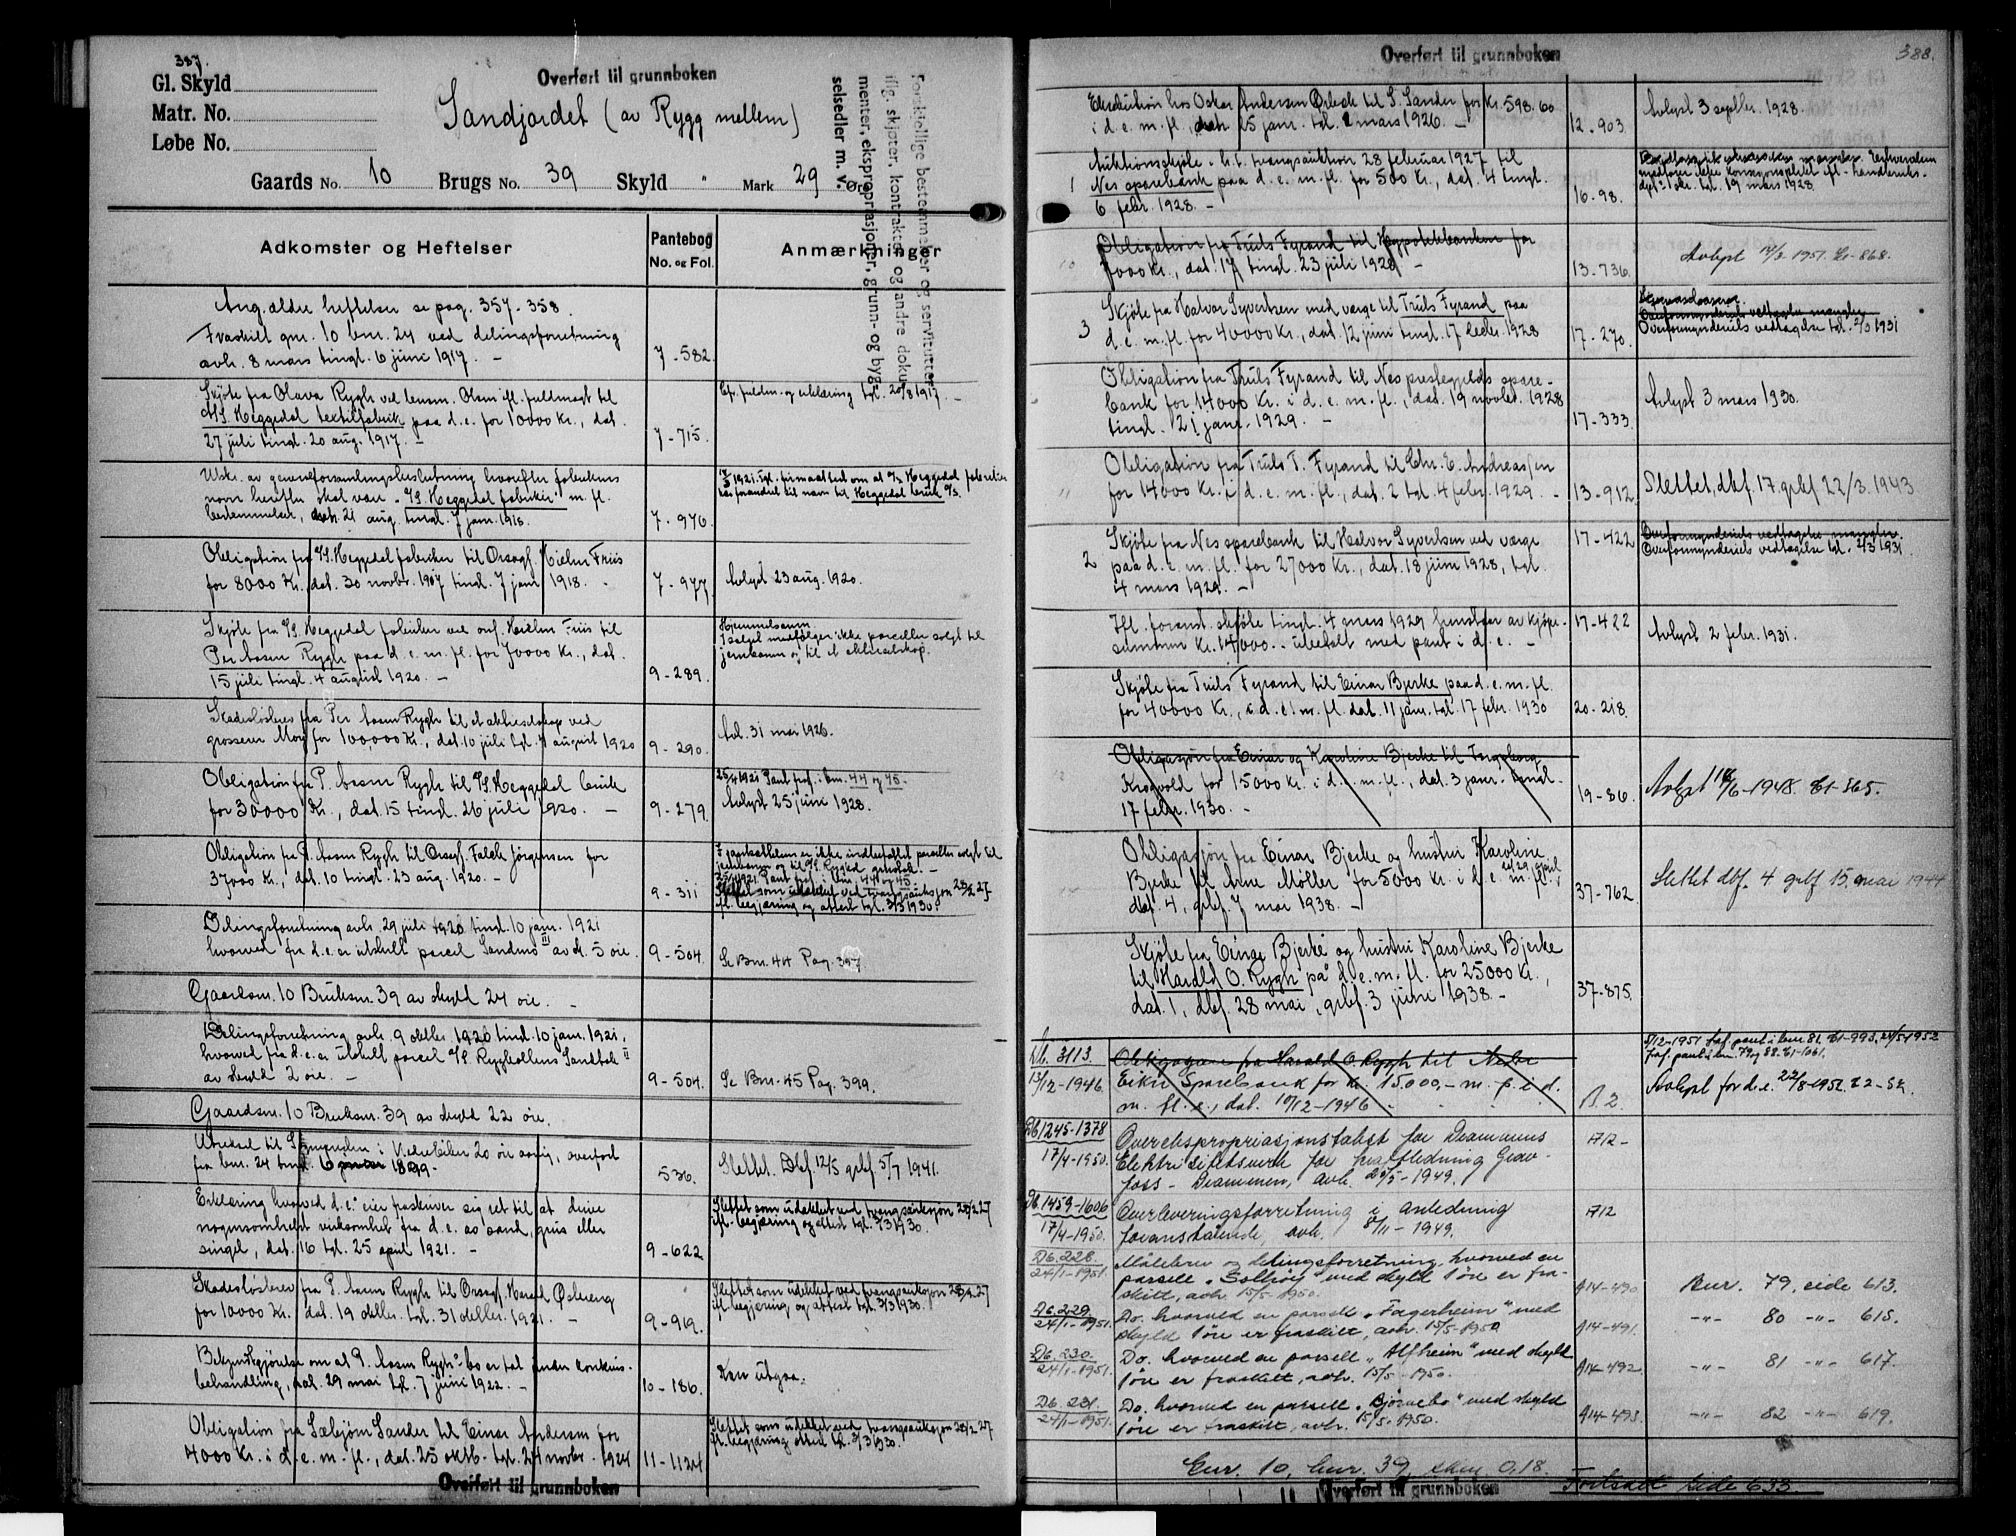 387.
Gl. Skyld
Matr. No.
Løbe No.
Overført til grunnboken
Sandjordet (av Rygg mellem)
Gaards No. 10 Brugs No. 39 Skyld " Mark 29 Øre
Forskjellige bestemmelser og servitutter
iflg. skjøter, kontrakter og andre doku-
menter, ekspropriasjoner, grunn- og byg-
selsedler m. v.
Adkomster og Heftelser
Pantebog
No. og Fol.
Anmærkninger
Ang. ældre heftelser se pag. 357-358.
Fraskilt gnr. 10 bnr. 24 ved delingsforretning
avh. 8 mars tingl. 6 juni 1917. - 7-582.
Skjøte fra Olava Rygh ved lensm. Olsen ifl. fuldmagt til
A/S. Heggedal textilfabrik paa d.e. for 10000 Kr., dat.
27 juli tingl. 20 aug. 1917. - 7-715.
Cfr. fuldm. og erklæring tgl. 20/8 1917. -
Utskr. av generalforsamlingsbeslutning hvorefter fabrikens
navn herefter skal være "A/S. Heggedal fabriker" m. fl.
bestemmelser, dat. 21 aug. tingl. 7 jan. 1918. 7-976.
har forandret sit navn til Heggedal bruk A/S.
Obligation fra A/S. Heggedal fabriker til Orsagf. Hielm Friis
for 8000 Kr. dat. 30 novbr. 1917 tingl. 7 jan. 1918. 7-977.
Avlyst 23 aug. 1920.
Skjøte fra A/S. Heggedal fabriker ved orsf. Hielm Friis til
Per Aasm Rygh paa d.e.m.fl. for 70000 Kr., dat.
15 juli tingl. 4 august 1920. - 9-289.
Hjemmelsanm.
I salget medfølger ikke parceller solgt til
jernbanen og til et aktieselskap.
Skadesløsbrev fra Per Aasm Rygh til et aktieselskap ved
grosserer Moy for 100,000 Kr., dat. 10 juli tgl. 4 august 1920 9-290.
Avl. 31 mai 1926.
Obligation fra P. Aasm Rygh til A/S. Heggedal bruk
for 30000 Kr., dat. 15 tingl. 26 juli 1920. - 9-279.
25/4 1921 Pant fraf. i bnr. 44 og 45.
Avlyst 25 juni 1928.
Obligation fra P. Aasm Rygh til Orsagf. Falck Jørgensen for
37000 Kr., dat. 10 tingl. 23 aug. 1920. - 9-311
I pantsættelsen er ikke indbefattet parceller solgt til
25/4 1921 Pant fraf. i bnr. 44 og 45.
Slettet som udækket ved tvangsauksjon 28/2 27
ifl. begjæring og attest tgl. 3/3 1930.
Delingsforretning avh. 29 juli 1920 tingl. 10 jan. 1921
hvorved fra d.e. er utskilt parcel Sandmo III av sk. 5 øre. 9-504.
Se Bnr. 44 Pag. 397
Gaardsnr. 10 Bruksnr. 39 av skyld 24 øre. -
Delingsforretning avh. 9 oktbr. 1920 tingl. 10 jan. 1921,
hvorved fra d.e. er utskilt parcel A/S Ryghkollens Sandtak II
av skyld 2 øre. - 9-504.
Se Bnr. 45 Pag. 399.
Gaardsnr. 10 Bruksnr. 39 av skyld 22 øre.
20 øre aarlig, overført
fra bnr. 24 tingl. 6 januar 1899. 536.
Slettet. Dbf. 12/5 grbf 5/7 1941.
Erklæring hvorved d.e.' eier fraskriver sig ret til at drive
nogensomhelst virksomhet fra d.e. av sand, grus eller
singel, dat. 16 tgl. 25 april 1921. - 9-622
Slettet som udækket ved tvangsauksjon 28/2 27
ifl. begjæring og attest tgl. 3/3 1930.
Skadesløsbrev fra P. Aasm Rygh til Orsagf. Harald Østeng
for 10000 Kr. dat. 19 oktbr. tgl. 31 oktbr. 1921. - 9-919.
Slettet som udækket ved tvangsauksjon 28/2 27
ifl. begjæring og attest tgl. 3/3 1930.
Bekjendtgjørelse om at P. Aasm Rygh's bo er tat under konkurs-
behandling, dat. 29 mai tgl. 7 juni 1922. - 10-186.
Kan utgaa.
Obligation fra Sæbjørn Sander til Einar Andersen for
4000 Kr. i d.e.m.fl., dat. 25 oktb. tgl. 24 novbr. 1924 11-1124
Slettet som udækket ved tvangsauksjon 28/2 27
ifl. begjæring attest tgl. 3/3 1930.
Overført til grunnboken
Overført til grunnboken
388.
Eksekution hos Oskar Andersen Ørbæk til S. Sander for Kr. 598.60
i d.e.m.fl., dat. 25 jan. tgl. 2 mars 1926. - 12-903
Avlyst 3 septbr. 1928.
1 Auktionsskjøte i h.t. tvangsauktion 28 februar 1927 til
Nes sparebank paa d.e.m.fl. for 500 Kr., dat. 4 tingl.
6 febr. 1928. - 16-98.
medfører ikke konsesjonsplikt ifl. Landbruks-
dept.s skr. tgl. 19 mars 1928
10 Obligation fra Truls Fyrand til Hypotekbanken for
7000 Kr., dat. 17 tingl. 23 juli 1928 - 13-736.
Avlyst 17/8-1951. -868.
3 Skjøte fra Halvor Syvertsen med verge til Truls Fyrand paa
d.e.m.fl. for 40000 Kr., dat. 12 juni tingl. 17 decbr. 1928 17-270.
Hjemmelsanm.
Overformynderiets vedtagelse mangler
Overformynderiets vedtagelse tgl. 2/3 1931
Obligation fra Truls Fyrand til Nes prestegjelds spare-
bank for 14000 Kr. i d.e.m.fl., dat. 19 novbr. 1928
tingl. 21 jan. 1929. - 17-333.
Avlyst 3 mars 1930.
11 Obligation fra Truls T. Fyrand til Chr. E. Andreassen
for 14000 Kr. i d.e.m.fl., dat. 2 tgl. 4 febr. 1929. - 13-912
Slettet, dbf. 17. grbf 22/3. 1943
2 Skjøte fra Nes sparebank til Halvor Syvertsen ved verge
paa d.e.m.fl. for 27000 Kr., dat. 18 juni 1928, tgl.
4 mars 1929. - 17-422
Overformynderiets vedtagelse mangler.
Overformynderiets vedtagelse tgl. 2/3 1931
Ifl. foranst. skjøte tingl. 4 mars 1929 henstaar av kjøpe-
summen Kr. 14000.- ubetalt med pant i d.e. - 17-422
Avlyst 2 febr. 1931.
Skjøte fra Truls Fyrand til Einar Bjerke paa d.e.m.fl.
for 40000 Kr., i d.e.m.fl. dat. 11 jan. tgl. 17 febr. 1930 20-218.
Obligasjon fra Einar og Karoline Bjerke til Ingeborg
Krogvold for 15000 Kr. i d.e.m.fl., dat. 3 jan. tingl.
17 febr. 1930. - 19-86.
Avlyst 14/6-1948. -365.
Obligasjon fra Einar Bjerke og hustru Karoline
Bjerke til Arne Møller for 5000 Kr. i d.e.m.fl.,
dat. 29 april
dbf. 4, grbf. 7 mai 1938. - 37-762
Slettet dbf. 4 grbf 15. mai 1944
Skjøte fra Einar Bjerke og hustru Karoline Bjerke
til Harald O. Rygh på d.e.m.fl. for 25000 Kr.,
dat. 1, dbf. 28 mai, grbf. 3 juni 1938. - 37-875.
Db. 3113.
13/12-1946.
Obligasjon fra Harald O. Rygh til Nedre
Eiker Sparebank for kr. 15.000,- m. p. i d.
m. fl. e., dat. 10/12-1946 B.2.
Avlyst for d.e. 22/8-1952.
Db 1245-1378
17/4-1950.
Overekspropriasjonstakst for Drammens
Elektrisitetsverk for kraftledning Grav-
foss - Drammen, avh. 25/5-1949. 1712-
Db. 1459-1606
17/4-1950.
Overleveringsforretning i anledning
foranstående, avh. 8/11-1949. 1712
Db. 228.
24/1-1951.
Målebrev og delingsforretning, hvorved en
parsell "Solhøy" med skyld 1 øre er fra-
skilt, avh. 15/5-1950. A14-490
Bnr. 79, side 613.
Db. 229.
24/1-1951.
Do. hvorved en parsell "Fagerheim" med
skyld 1 øre er fraskilt, avh. 15/5-1950 A14-491.
-"- 80 -"- 615.
Db. 230.
24/1-1951.
Do. hvorved en parsell "Alfheim" med skyld
1 øre er fraskilt, avh. 15/5-1950. A14-492
-"- 81 -"- 617.
Db. 231.
24/1-1951.
Do. hvorved en parsell "Bjørnebo" med skyld
1 øre er fraskilt, avh. 15/5-1950. A14-493.
-"- 82 -"- 619.
Gnr. 10, bnr. 39, skyld 0,18.
Overført til grunnboken
Fortsatt side 633.